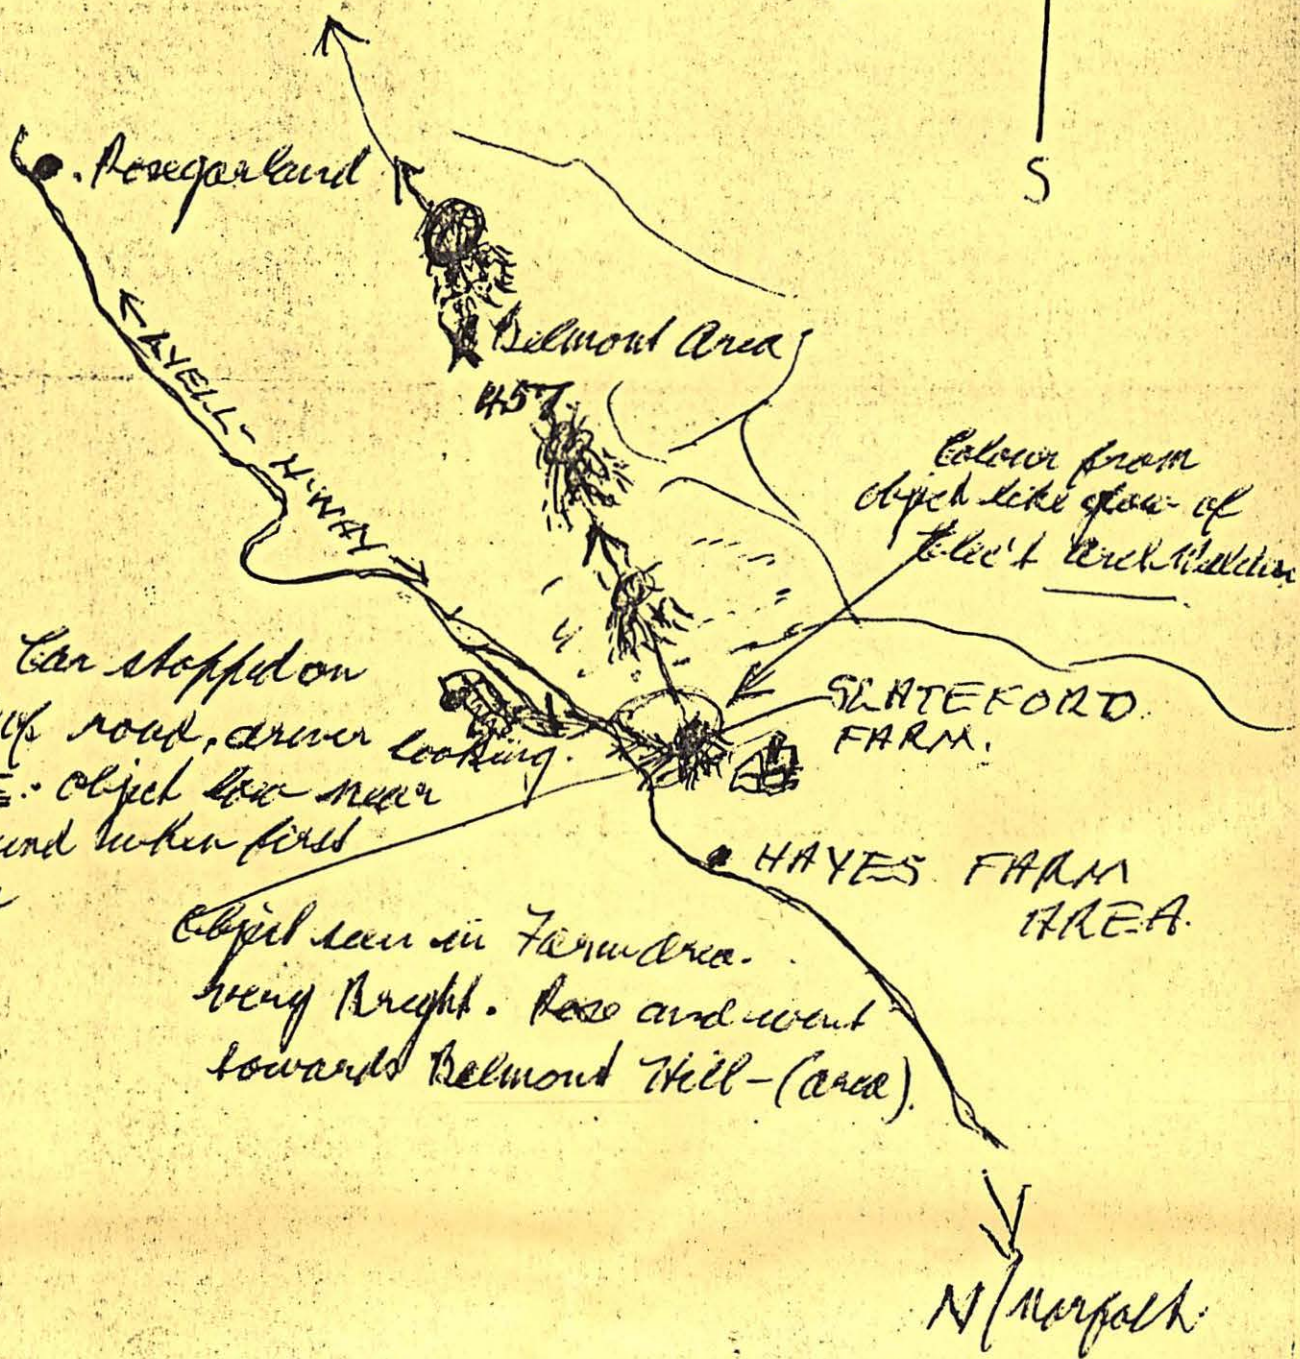 S
. Rosegarland
LYELL - H'WAY
Belmont Area
457.
Colour from
object like glow of
Elec't arch Welder
Car stopped on
road, driver looking.
: Object low near
when first
SLATEFORD
FARM.
HAYES FARM
AREA.
Object seen in Farm Area.
very Bright. Rose and went
towards Belmont Hill - (area).
N/Norfolk